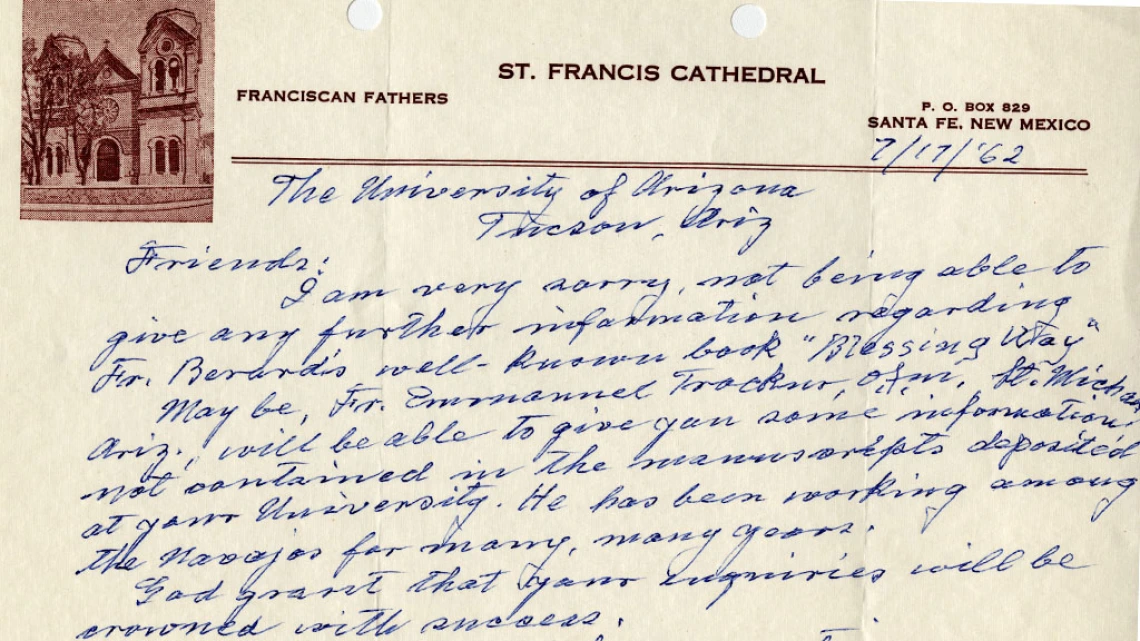 ST. FRANCIS CATHEDRAL
FRANCISCAN FATHERS
P. O. BOX 829
SANTA FE, NEW MEXICO
7/17/'62
The University of Arizona
Tucson, Ariz
Friends:
I am very sorry, not being able to
give any further information regarding
Fr. Berard's well-known book "Blessing Way"
May be, Fr. Emmanuel Trockur, O.f.m., St. Michaels
Ariz., will be able to give you some information,
not contained in the manuscripts deposited
at your University. He has been working among
the Navajos for many, many years.
God grant that your inquiries will be
crowned with success.